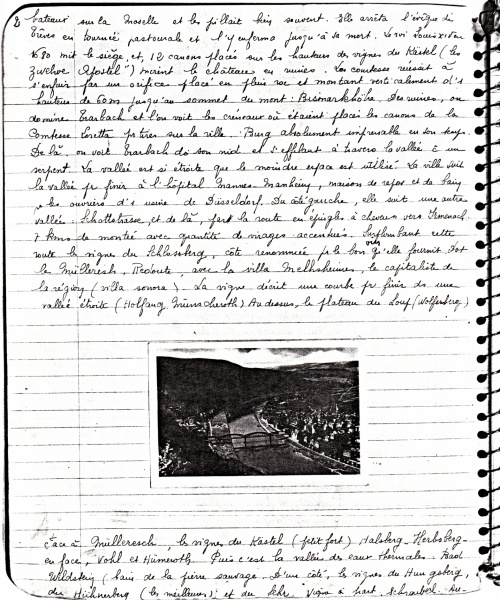 2 bateaux sur la Moselle et les pillait bien souvent. Elle arrêta l'évêque de
Trèves en tournée pastorale et l'y enferma jusqu'à sa mort. Le roi Louis XIV en
1680 mit le siège, et, 12 canons placés sur les hauteurs des vignes du Kastel (les
Zwelwe Apostel") mirent le château en ruines. La comtesse réussit à
s'enfuir par un orifice placé en plein roc et montant verticalement d's
hauteur de 60m jusqu'au sommet du mont: Bismarkhöhe. Des ruines, on
domine Trarbach et l'on voit les créneaux où étaient placés les canons de la
Comtesse Loretta, pointés sur la ville. Burg absolument imprenable en son temps.
De là, on voit Trarbach ds son nid et s'effilant à travers la vallée
serpent. La vallée est si étroite que le moindre espace est utilisé. La ville suit
la vallée pr finir à l'hôpital Mannes-Manheim, maison de repos et de bains
les ouvriers d's usine de Düsseldorf. Du côté gauche, elle suit une autre
vallée: Schottstrasse, et de là, part la route en épingle à cheveux vers Irmenach.
7 kms de montée avec quantité de virages accentués. Surplombant cette
route la vigne du Schlossberg, côte renommée pr le bon vin qu'elle fournit. Puis
la Mülleresh, Redoute, avec la villa Melsheimer, le capitaliste de
la région (villa sonora). La vigne décrit une courbe pr finir ds une
vallée étroite (Wolfgang Münscheroth) Au dessus, le plateau du Loup (Wolferberg)
face à Mülleresch, les vignes du Kastel (petit fort) Halsberg-Herbsberg-
en face, Vohl et Hümeroth. Puis c'est la vallée des eaux thermales. Bad
Wildstein (bains de la pierre sauvage. D'un côté, les vignes du Hungsberg,
du Hühnerberg (les meilleures) et du Lehr. Vigne à part Schraubert. Au-